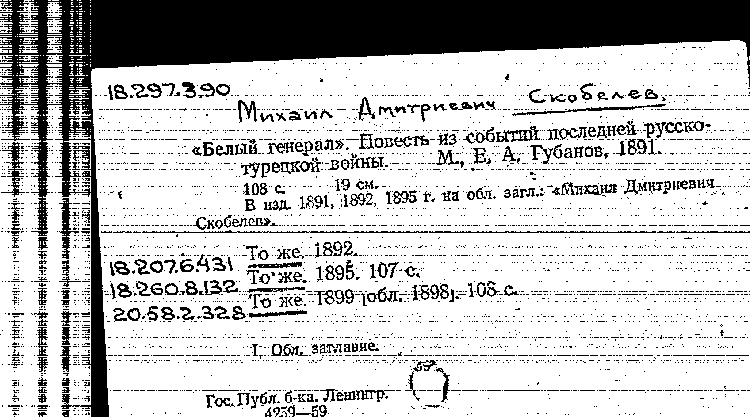 18.297.3.90
Михаил Дмитриевич Скобелев.
«Белый генерал». Повесть из событий последней русско-
турецкой войны. М., Е, А, Губанов, 1891.
108 с. 19 см.
В изд. 1891, 1892, 1895 г. на обл. загл.: «Михаил Дмитриевич
Скобелев».
То же. 1892.
18.207.6.431 То же. 1895. 107 с.
18.260.8.132 То же. 1899 [обл. 1898]. 108 с.
20.58.2.328
I Обл. заглавие.
Гос. Публ. б-ка. Ленингр.
4239—59